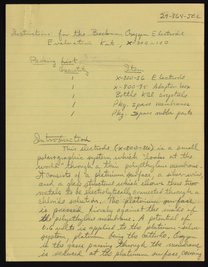 29-764-JEL
Instructions for the Beckman Oxygen Electrode
Evaluation Kit, x-200-100
Packing List
Quantity Item
1 x-200-56 Electrode
1 x-200-35 Adapter box
1 Bottle KCl crystals
1 Pkg. spare membrane
1 Pkg. spare rubber parts
Introduction
This electrode (x-200-56) is a small
polarographic system which "looks at the
world" through a thin polyethylene membrane.
It consists of a platinum surface, a silver wire,
and a glass structure which leaves these two
metals to be electrolytically connected through a
chloride solution. The platinum surface
is pressed firmly against the inside of
the polyethylene membrane. A potential of
0.6 volt is applied to the platinum-silver
system, platinum being the cathode. Oxygen
in the gases passing through the membrane
is reduced at the platinum surface, causing